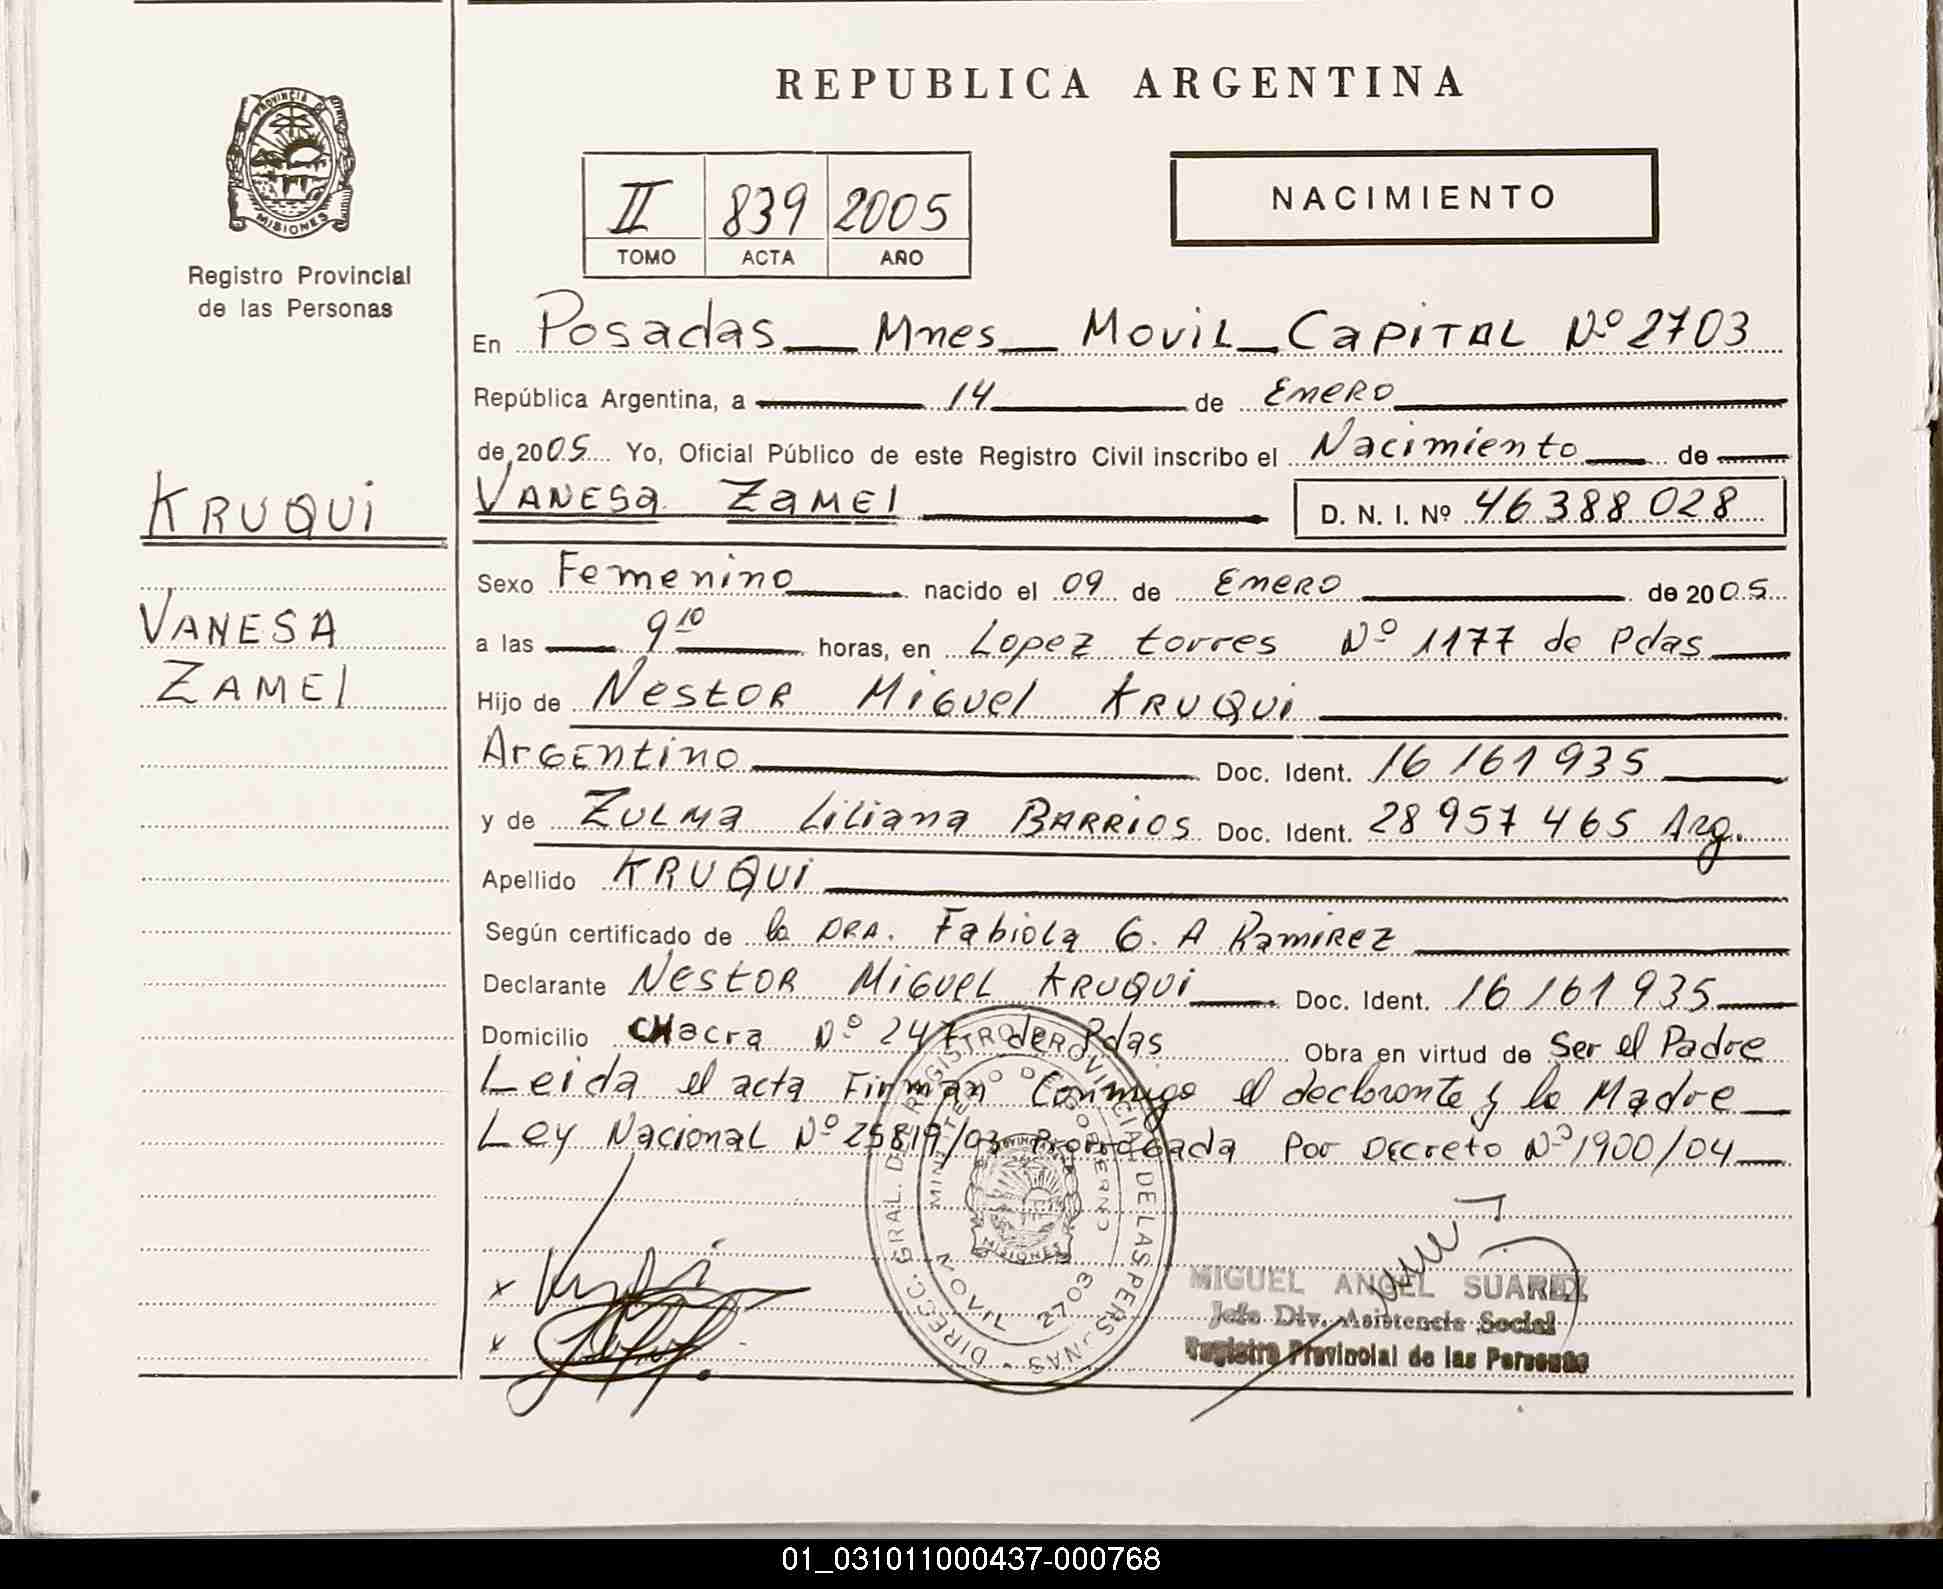 REPUBLICA ARGENTINA
PROVINCIA DE
MISIONES
Registro Provincial
de las Personas
II 839 2005
TOMO ACTA AÑO
NACIMIENTO
En Posadas Mnes Movil Capital Nº 2703
República Argentina, a 14 de Enero
de 2005 Yo, Oficial Público de este Registro Civil inscribo el Nacimiento de
KRUQUI
VANESA ZAMEI D. N. I. Nº 46388028
Sexo Femenino nacido el 09 de Enero de 2005
VANESA
ZAMEI
a las 9 10 horas, en Lopez torres Nº 1177 de Pdas
Hijo de Nestor Miguel KRUQUI
Argentino Doc. Ident. 16 161 935
y de Zulma Liliana BARRIOS Doc. Ident. 28 957 465 Arg.
Apellido KRUQUI
Según certificado de la DRA. Fabiola G. A Ramirez
Declarante Nestor Miguel KRUQUI Doc. Ident. 16 161 935
Domicilio CHacra Nº 247 de Pdas Obra en virtud de Ser el Padre
Leida el acta Firman Conmigo el declarante y la Madre
Ley Nacional Nº 25819/03 Prorrogada Por Decreto Nº 1900/04
DIRECC. GRAL. DE REGISTRO PROVINCIAL DE LAS PERSONAS
MINISTERIO DE GOBIERNO
MISIONES
MOVIL 2703
MIGUEL ANGEL SUAREZ
Jefe Div. Asistencia Social
Registro Provincial de las Personas
01_031011000437-000768